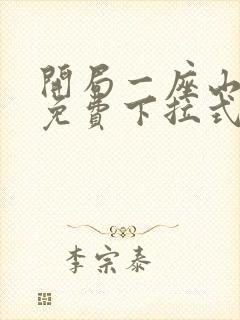 開局一座山
免費下拉式
李宗泰